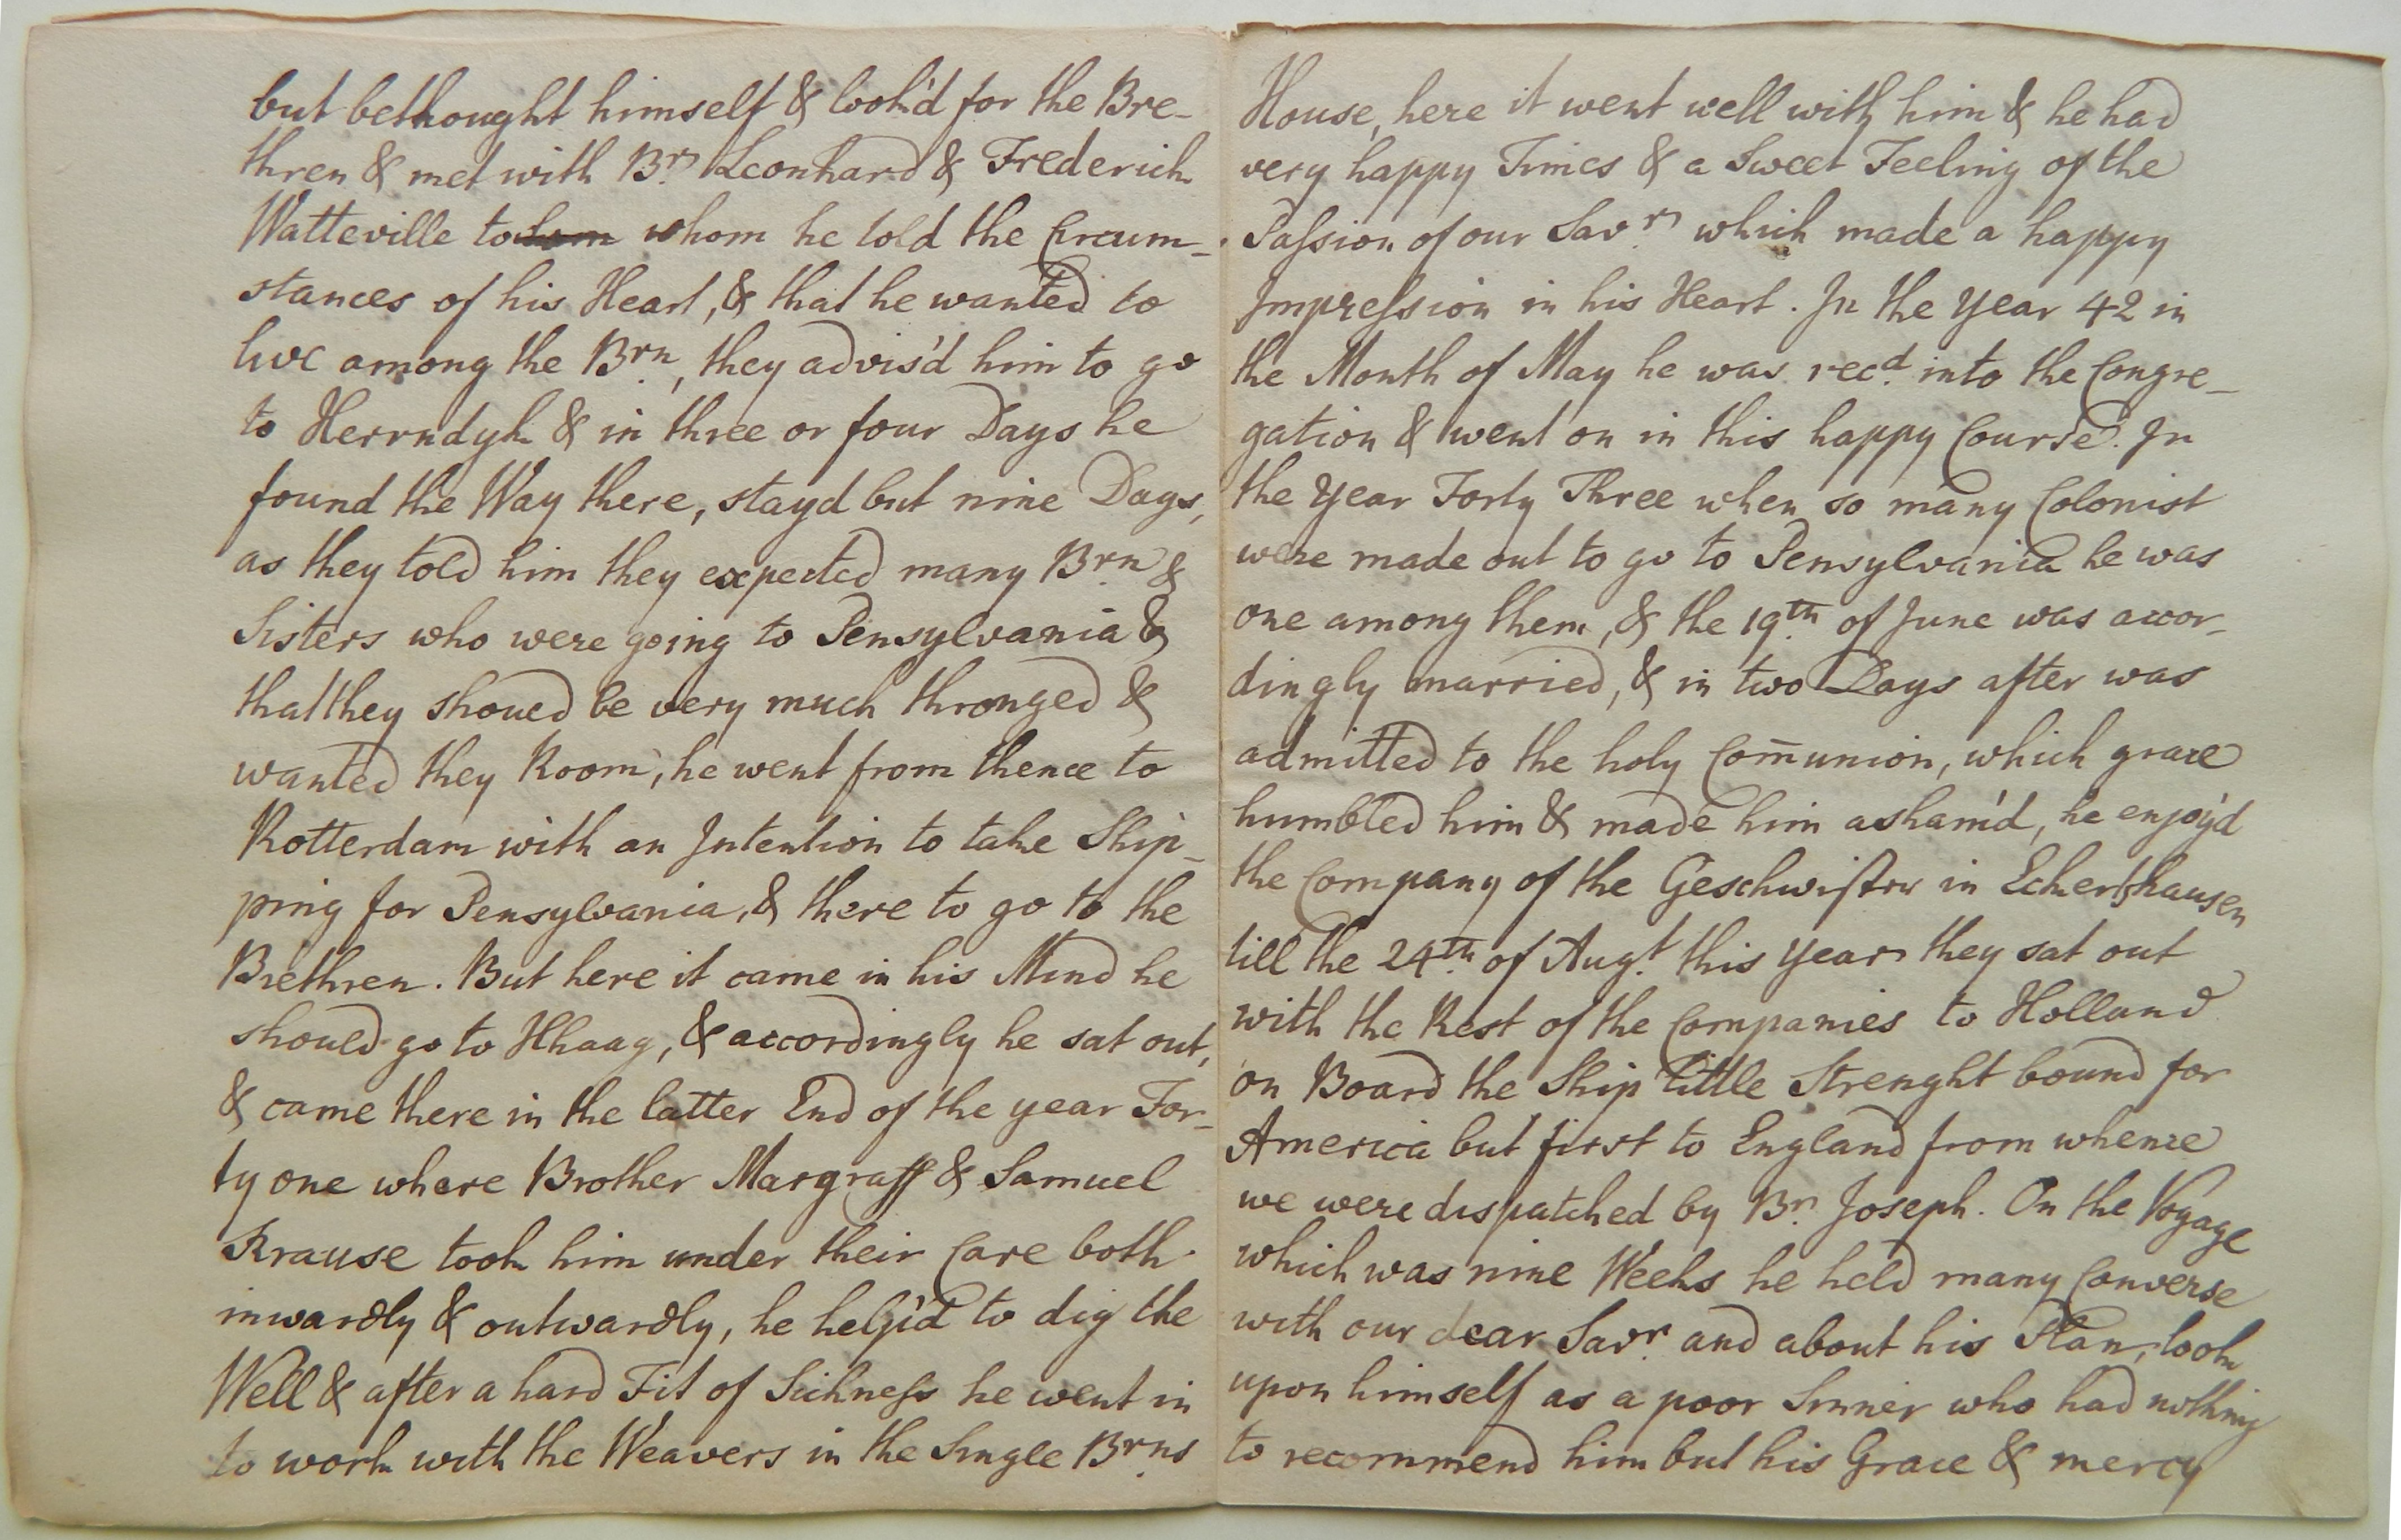 but bethought himself & look'd for the Bre-
thren & met with Br. Leonhard & Frederich
Watteville to whom he told the Circum-
stances of his Heart, & that he wanted to
live among the Brn, they advis'd him to go
to Herrndyk & in three or four Days he
found the Way there, stayd but nine Days,
as they told him they expected many Brn &
Sisters who were going to Pensylvania &
that they shoued be very much thronged &
wanted they Room, he went from thence to
Rotterdam with an Intention to take Ship-
ping for Pensylvania, & there to go to the
Brethren. But here it came in his Mind he
should go to Hhaag, & accordingly he sat out,
& came there in the latter End of the year For-
ty one where Brother Margraff & Samuel
Krause took him under their Care both
inwardly & outwardly, he help'd to dig the
Well & after a hard Fit of Sickness he went in
to work with the Weavers in the Single Brns
House, here it went well with him & he had
very happy Times & a Sweet Feeling of the
Passion of our Savr. which made a happy
Impression in his Heart. In the Year 42 in
the Month of May he was recd. into the Congre-
gation & went on in this happy Course. In
the Year Forty Three when so many Colonist
were made out to go to Pensylvania he was
one among them, & the 19th. of June was accor-
dingly married, & in two Days after was
admitted to the holy Com̄union, which grace
humbled him & made him asham'd, he enjoy'd
the Company of the Geschwister in Eckertshausen
till the 24th. of Augt. this Year they sat out
with the Rest of the Companies to Holland
on Board the Ship little Strenght bound for
America but first to England from whence
we were dispatched by Br. Joseph. On the Voyage
which was nine Weeks he held many Converse
with our dear Savr. and about his Plan, look
upon himself as a poor Sinner who had nothing
to recommend him but his Grace & mercy